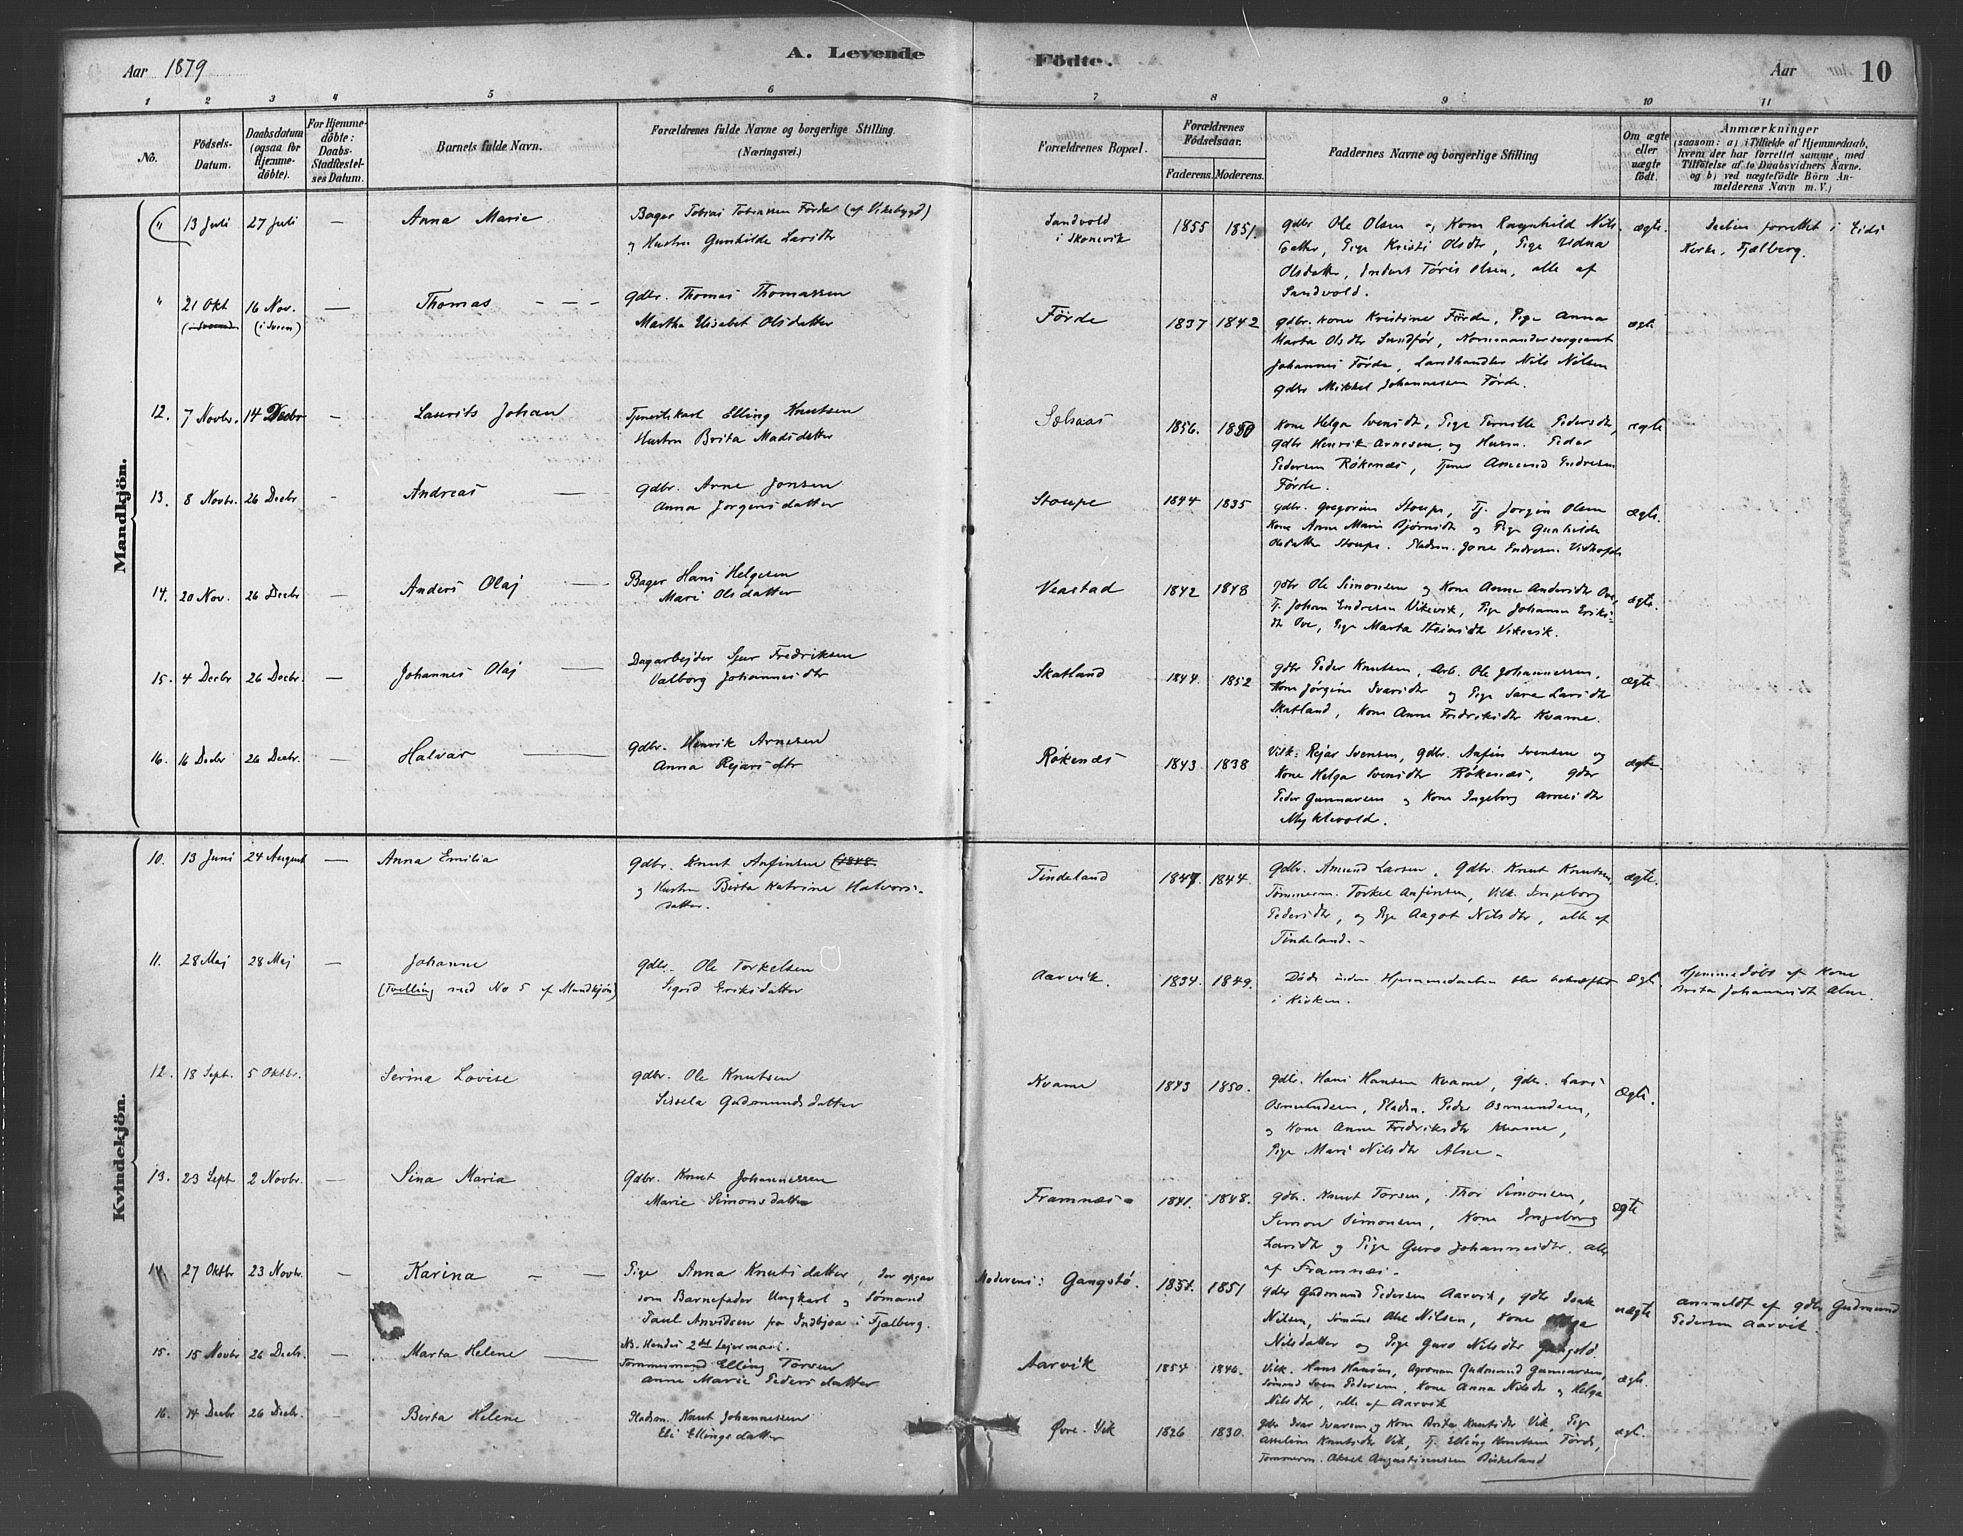 Aar 1879
A. Levende Födte.
Aar 10
1 2 3 4 5 6 7 8 9 10 11
No.
Födsels-Datum.
Daabsdatum (ogsaa for Hjemme-döbte).
For Hjemme-döbte: Daabs-Stadfæstel-ses Datum.
Barnets fulde Navn.
Forældrenes fulde Navne og borgerlige Stilling. (Næringsvei.)
Forældrenes Bopæl.
Forældrenes Födselsaar.
Faderens. Moderens.
Faddernes Navne og borgerlige Stilling
Om ægte eller uægte födt.
Anmærkninger
(saasom: a) i Tilfælde af Hjemmedaab, hvem der har forrettet samme, med Tilföielse af to Daabsvidners Navne. og b) ved uægtefödte Börn An-melderens Navn m. V.)
Mandkjön.
" 13 Juli 27 Juli — Anna Marie
Bager Tobias Tobiassen Förde (af Vikebygd)
og Hustru Gunhilde Larsdtr
Sandvold i Skonevik 1855 1851.
Gdbr Ole Olsen og Kone Ragnhild Nils-
datter, Pige Kristi Olsdtr, Pige Edna
Olsdatter, Inderst Töris Olsen, alle af
Sandvold.
ægte.
Daaben forrettet i Eids
Kirke, Fjælberg.
" 21 Okt 16 Nov. (i Sveen) — Thomas
Gdbr. Thomas Thomassen
Martha Elisabet Olsdatter
Förde 1837 1842
Gdbr. Kone Kristine Förde, Pige Anna
Marta Olsdtr Sundför, Kommandersergeant
Johannes Förde, Landhandler Nils Nilsen
Gdbr Mikkel Johannessen Förde.
ægte
12. 7 Novbr. 14 Decbr — Laurits Johan
Tjenestekarl Elling Knutsen
Hustru Brita Madsdatter
Solsaas 1856. 1850
Kone Helga Svensdtr, Pige Pernille Pedersdtr,
Gdbr Henrik Arnesen, og Husm. Peder
Pedersen Røkenæs, Tjener Amund Endresen
Förde.
ægte
13. 8 Novbr. 26 Decbr - Andreas
Gdbr. Arne Jonsen
Anna Jørgensdatter
Stoupe 1844 1835
Gdbr. Gregorius Stoupe, Tj. Jørgen Olsen
Kone Anne Marie Bjørnsdtr og Pige Gunhilde
Olsdatter Stoupe. Pladsm. Jone Endresen
ægte.
14. 20 Nov. 26 Decbr — Anders Olaj
Bager Hans Helgesen
Mari Olsdatter
Veastad 1842 1848
Gdbr Ole Simonsen og Kone Anne Andersdtr Ove,
Tj. Johan Endresen Vikevik, Pige Johanna Eriks-
dtr Ove, Pige Marta Steinsdtr Vikevik.
ægte.
15. 4 Decbr 26 Decbr. — Johannes Olaj
Dagarbejder Sjur Fredriksen
Valborg Johannesdtr
Skatland 1844. 1852
Gdbr Peder Knutsen, Arb. Ole Johannessen,
Kone Jörgine Ivarsdtr og Pige Sara Larsdtr
Skatland, Kone Anne Fredriksdtr Kvame.
ægte
16. 16 Decbr 26 Decbr. — Halvar
Gdbr. Henrik Arnesen
Anna Rejarsdtr
Røkenæs 1843 1838
Vilk. Rejar Svensen, Gdbr. Anfin Svensen og
Kone Helga Svensdtr Røkenæs, Gdbr
Peder Gunnarsen og Kone Ingeborg Arnesdtr
Myklevold.
ægte.
Kvindekjön.
10. 13 Juni 24 August — Anna Emilia
Gdbr. Knut Anfinsen (1848.
og Hustru Birta Katrine Halvors-
datter.
Tindeland 1847. 1844.
Gdbr. Amund Larsen, Gdbr. Knut Knutsen,
Tömmerm. Torkel Anfinsen, Vilk. Ingeborg
Pedersdtr, og Pige Aagot Nilsdtr, alle af
Tindeland.-
ægte.
11. 28 Maj 28 Maj — Johanne
(Tvelling med No 5 af Mandkjön)
Gdbr. Ole Torkelsen
Sigrid Eriksdatter
Aarvik. 1834. 1849.
Døde inden Hjemmedaaben blev bekræftet
i Kirken.
ægte.
Hjemmedøbt af Kone
Brita Johannesdtr Alne.
12. 18 Sept. 5 Oktbr. Serina Lovise
Gdbr. Ole Knutsen
Sissela Gudmundsdatter
Kvame 1843 1850.
Gdbr. Hans Hansen Kvame, Gdbr. Lars
Osmundsen, Pladsm. Peder Osmundsen,
og Kone Anne Fredriksdtr Kvame,
Pige Mari Nilsdtr Alne-
ægte.
13. 23 Sept 2 Novbr. — Sina Maria
Gdbr. Knut Johannessen
Marie Simonsdatter
Framnæs- 1841. 1848.
Gdbr. Knut Torsen, Thor Simonsen,
Simon Simonsen, Kone Ingeborg
Larsdtr og Pige Guro Johannesdtr. alle
af Framnæs.
ægte
14 27 Oktbr 23 Novbr. — Karina
Pige Anna Knutsdatter, der opgav
som Barnefader Ungkarl og Sømand
Paul Arvidsen fra Indbjoa i Fjælberg.
Nb. Hendes 2det Lejermaal.
Moderens: Gangstø. 1851
Gdbr Gudmund Pedersen Aarvik, Gdbr Isak
Nilsen, Sömand Nilsen, Kone
Nilsdatter og Pige Guro Nilsdtr Gangstø
uægte
Anmeldt af Gdbr Gudmund
Pedersen Aarvik.
15. 15 Novbr 26 Decbr. Marta Helene
Tømmermand Elling Torsen
Anne Marie Pedersdatter
Aarvik 1854 1846.
Vilk. Hans Hansen, Agronom Gudmund Gunnarsen,
Sömand Sven Pedersen, Kone Anna Nilsdtr og Helga
Nilsdtr, alle af Aarvik
ægte.
16. 14 Decbr 26 Decbr. Birta Helene
Pladsm. Knut Johannessen
Eli Ellingsdatter
Øvre-Vik 1826 1830.
Gdbr Ivar Ivarsen og Kone Brita Knutsdtr Vik, Pige
Knutsdtr Vik, Tj. Elling Knutsen Førde,
Tømmerm. Aksel Augustinussen Birkeland
ægte.